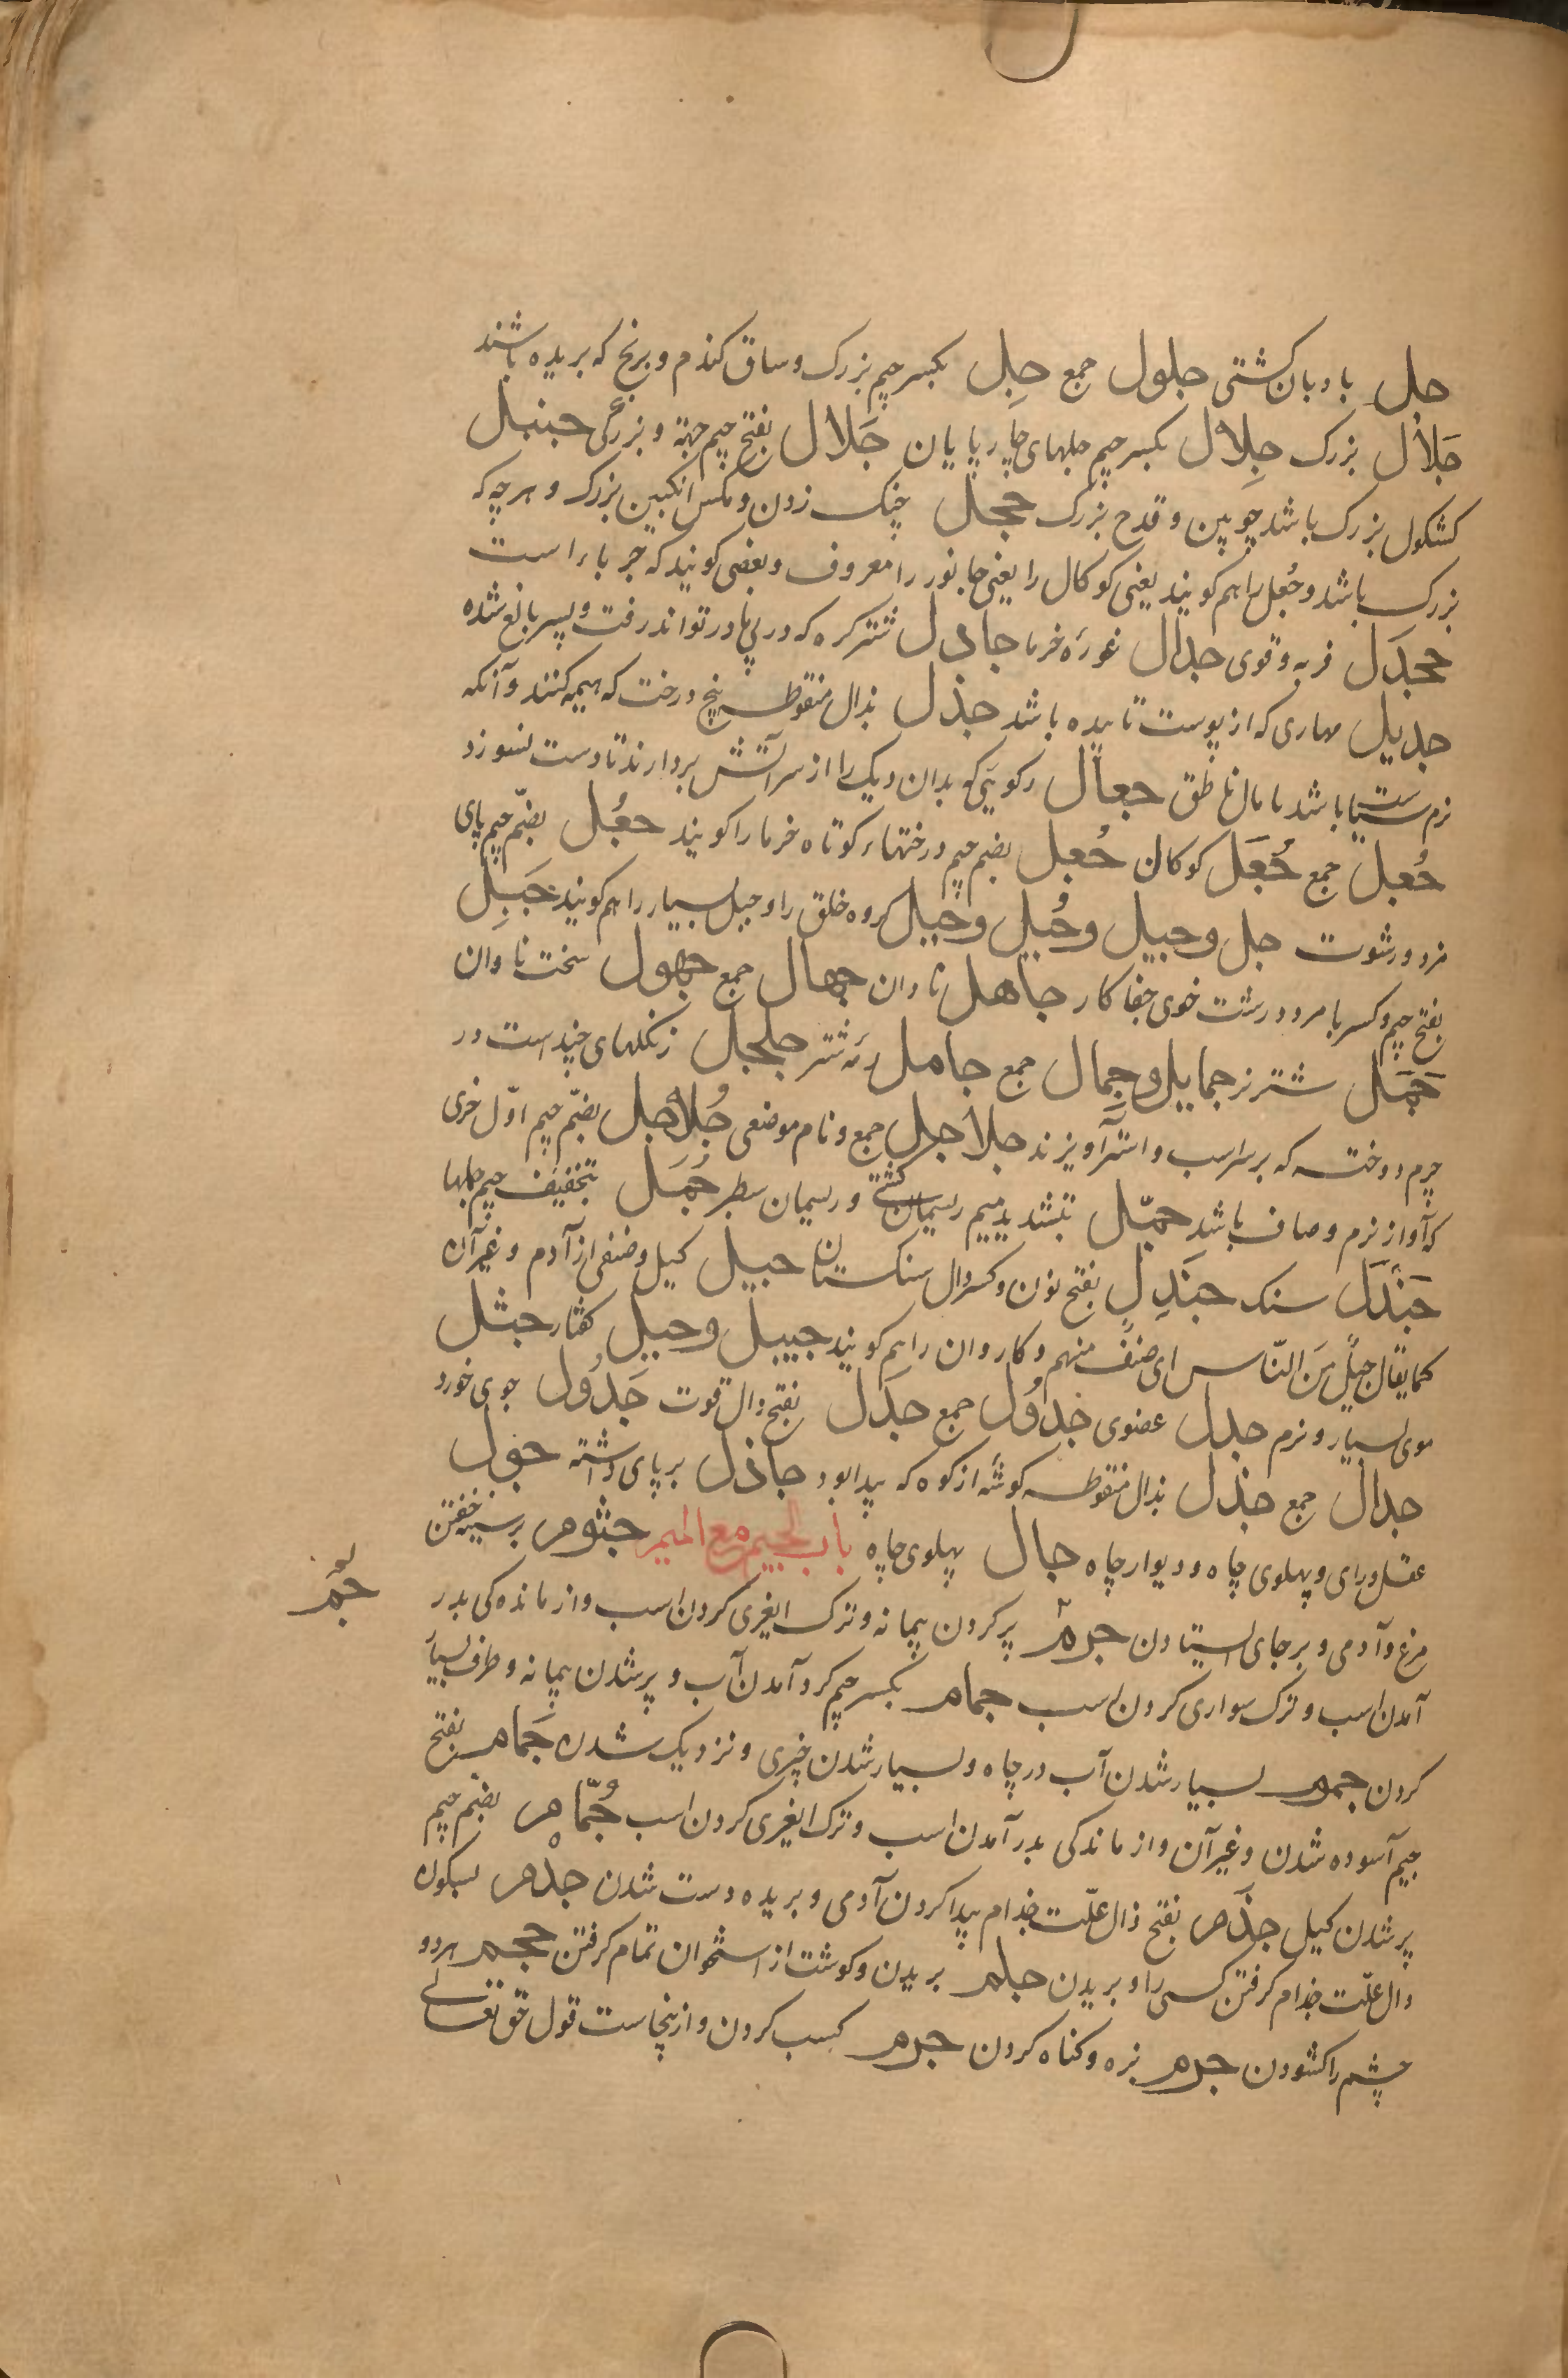 جل بادبان کشتی جلول جمع جِل بکسر جیم بزرک و ساق کندم و برنج که بریده باشند
جَلال بزرک جِلال بکسر جیم جلهای چارپایان جَلال بفتح جیم جهة و بزرگی جنبل
کشکول بزرک باشد چوبین و قدح بزرک جحل چنک زدن و مکس انکبین بزرک و هرچه که
بزرک باشد و جُعل را هم کویند یعنی کوکال را یعنی جانور را معروف و بعضی کویند که حرباء است
جحدَل فربه و قوی جدال غورَه خرما جادل شترکره که در پی مادر تواند رفت و پسر بالغ شده
جدیل مهاری که از پوست تابیده باشد جذل بذال منقوطه بیخ درخت که هیمه کنند و آنکه
نرم ستیا باشد با مال ناطق جعال رکویی که بدان دیک را از سر آتش بردارند تا دست نسوزد
جُعل جمع جُعَل کوکال جُعل بضم جیم درختهاء کوتاه خرما را کویند جعُل بضمّ جیم پای
مزد و رشوت جبل و جبیل و جُبل و جبیل کروه خلق را و جبل بسیار را هم کویند جَبِل
بفتح جیم و کسر با مرد درشت خوی جفاکار جاهل نادان جهال جمع جهول سخت نادان
جَمَل شتر نر جمایل و جِمال جمع جامل رمَه شتر جلجل زنکلهای چند است در
چرم دوخته که بر سر اسب و استر آویزند جلاجل جمع و نام موضعی جُلاجل بضمّ جیم اوّل خری
که آواز نرم و صاف باشد جمّل بتشدید میم ریسمان کشتی و ریسمان سطبر جُمَل بتخفیف جیم جملها
جَندَل سنک جنَدِل بفتح نون و کسر دال سنکستان جیل کیل و صنفی از آدم و غیر آن
کما یقال جیلٌ مِنَ النّاس ای صنفٌ منهم و کاروان را هم کویند جییل و جیل کفتار جثل
موی بسیار و نرم جدل عضوی جدُول جمع جدَل بفتح دال قوت جَدوَل جوی خورد
جدال جمع جذل بذال منقوطه کوشَه از کوه که پیدا بود جاذل بر پای داشته جول
عقل و رای و پهلوی چاه و دیوار چاه جال پهلوی چاه باب الجیم مع المیم جثوم بر سینه خفتن
مرغ و آدمی و بر جای ایستادن جرم پر کردن پیمانه و ترک ایغری کردن اسب و از مانده کی بدر
جمّ
آمدن اسب و ترک سواری کردن اسب جمام بکسر جیم کرد آمدن آب و پر شدن پیمانه و ظرف بسیار
کردن جموم بسیار شدن آب در چاه و بسیار شدن چیزی و نزدیک شدن جَمام بفتح
جیم آسوده شدن و غیر آن و از ماندکی بدر آمدن اسب و ترک ایغری کردن اسب جُمّام بضم جیم
پر شدن کیل جذَم بفتح ذال علّت جذام پیدا کردن آدمی و بریده دست شدن جذْم بسکون
دال علّت جذام کرفتن کسی را و بریدن جلم بریدن و کوشت از استخوان تمام کرفتن جحم هر دو
چشم را کشودن جرم بزه و کناه کردن جرم کسب کردن و ازینجاست قول حق تعالی